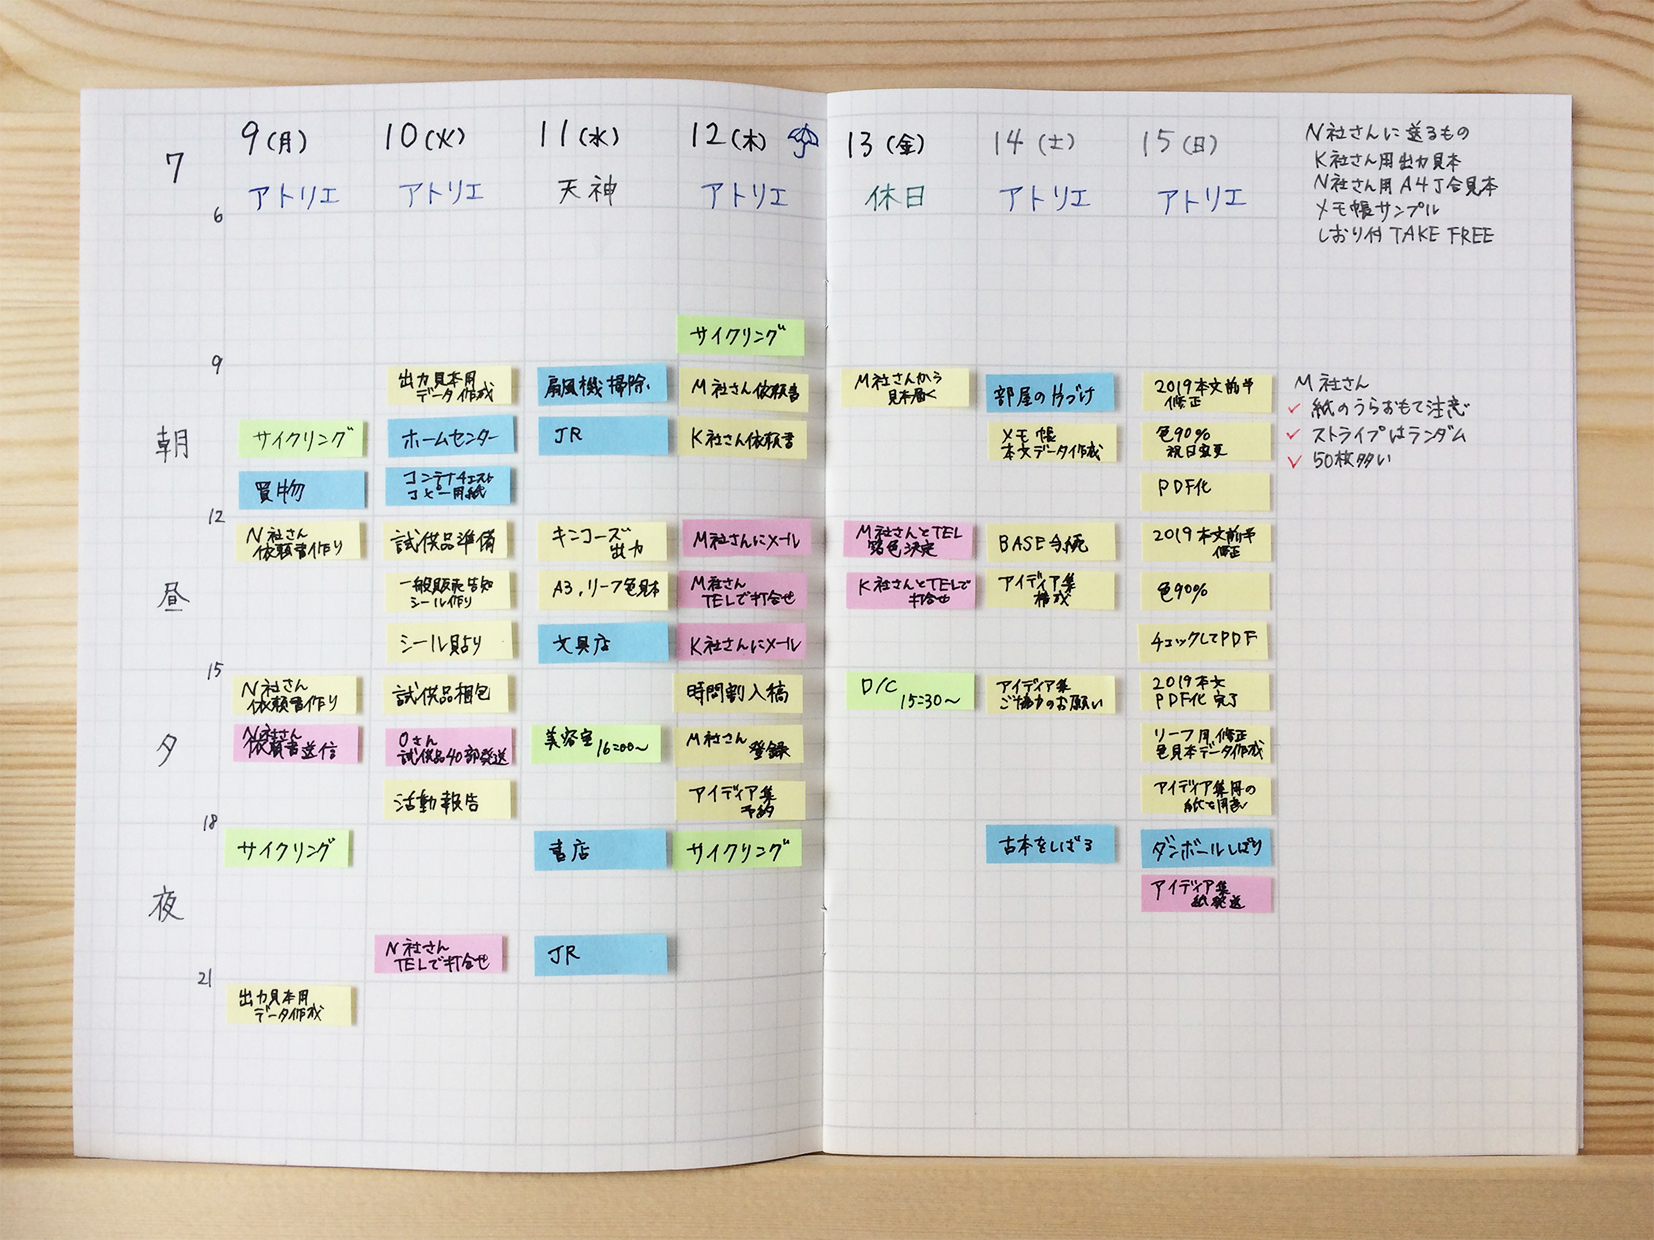 7
9(月)
アトリエ
10(火)
アトリエ
11(水)
天神
12(木)
アトリエ
13(金)
休日
14(土)
アトリエ
15(日)
アトリエ
6
9
朝
12
昼
15
夕
18
夜
21
サイクリング
買物
N社さん
依頼書作り
N社さん
依頼書作り
N社さん
依頼書送信
サイクリング
出力見本用
データ作成
出力見本用
データ作成
ホームセンター
コンテナチェスト
コピー用紙
試供品準備
一般販売告知
シール作り
シール貼り
試供品梱包
Oさん
試供品40部発送
活動報告
N社さん
TELで打合せ
扇風機掃除
JR
キンコーズ
出力
A3,リーフ色見本
文具店
美容室
16:00〜
書店
JR
サイクリング
M社さん依頼書
K社さん依頼書
M社さんにメール
M社さん
TELで打合せ
K社さんにメール
時間割入稿
M社さん
登録
アイディア集
予約
サイクリング
M社さんから
見本届く
M社さんとTEL
色決定
K社さんとTELで
打合せ
D/C
15:30〜
部屋の片づけ
メモ帳
本文データ作成
BASE手続
アイディア集
構成
アイディア集
ご協力のお願い
古本をしばる
2019本文前半
修正
色90%
祝日変更
PDF化
2019本文前半
修正
色90%
チェックしてPDF
2019本文
PDF化 完了
リーフ用修正
色見本データ作成
アイディア集用の
紙を用意
ダンボールしばり
アイディア集
紙発送
N社さんに送るもの
K社さん用出力見本
N社さん用A4J合見本
メモ帳サンプル
しおり付 TAKE FREE
M社さん
✓ 紙のうらおもて注意
✓ ストライプはランダム
✓ 50枚多い